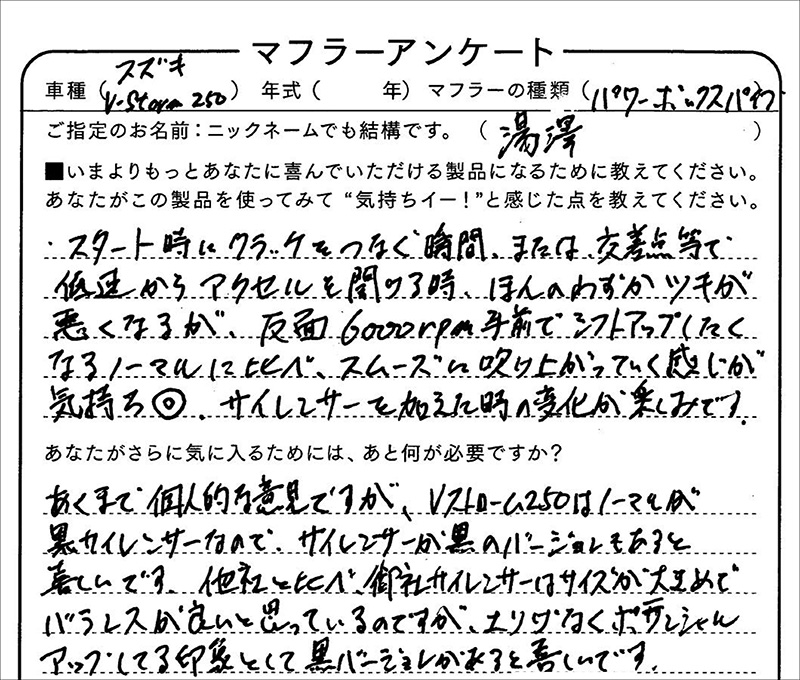 マフラーアンケート
スズキ
車種（V-Storm 250）　年式（　　年）マフラーの種類（パワーボックスパイプ
ご指定のお名前：ニックネームでも結構です。（湯澤）
■いまよりもっとあなたに喜んでいただける製品になるために教えてください。
あなたがこの製品を使ってみて“気持ちイー！”と感じた点を教えてください。
・スタート時にクラッチをつなぐ時間、または、交差点等で
低速からアクセルを開ける時、ほんのわずかツキが
悪くなるが、反面6000rpm手前でシフトアップしたく
なるノーマルに比べ、スムーズに吹け上がっていく感じが
気持ち◎、サイレンサーを加えた時の変化が楽しみです。
あなたがさらに気に入るためには、あと何が必要ですか？
あくまで個人的な意見ですが、Vストローム250はノーマルが
黒サイレンサーなので、サイレンサーが黒のバージョンもあると
喜しいです。他社と比べ、御社サイレンサーはサイズが大きめで
バランスが良いと思っているのですが、エリアなく
アップしてる印象として黒バージョンがあると喜しいです。